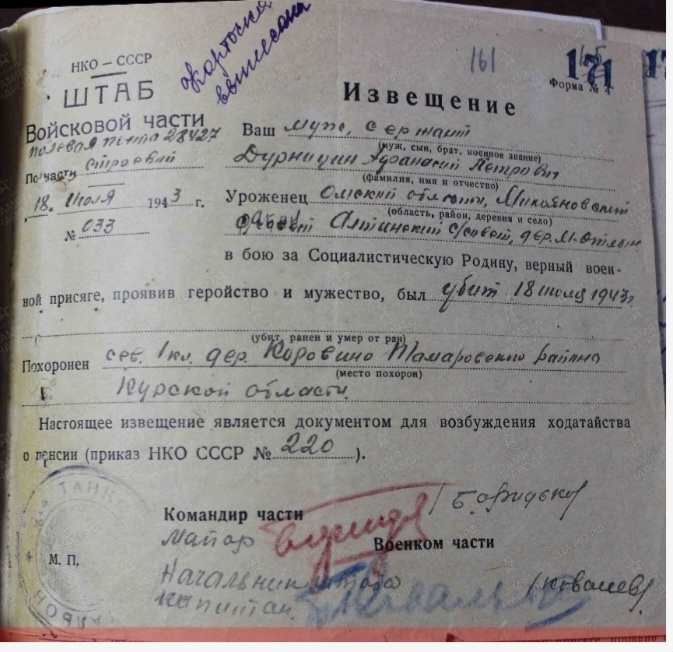 карточка
выписана
161
171
НКО — СССР
ШТАБ
Войсковой части
полевая почта 28427
По части строевой
„18„ июля 1943 г.
№ 033
Форма № 4
Извещение
Ваш муж, сержант
(муж, сын, брат, военное звание)
Дурницин Афанасий Петрович
(фамилия, имя и отчество)
Уроженец Омской области,
(область, район, деревня и село)
с/совет, дер.
в бою за Социалистическую Родину, верный воен-
ной присяге, проявив геройство и мужество, был убит 18 июля 1943г
(убит, ранен и умер от ран)
Похоронен сев. 1 км. дер. Коровино Томаровского района
(место похорон)
Курской области.
Настоящее извещение является документом для возбуждения ходатайства
о пенсии (приказ НКО СССР № 220 ).
ТАНКО
Командир части
Майор
Военком части
М. П.
Начальник штаба
капитан
/Ковалев/